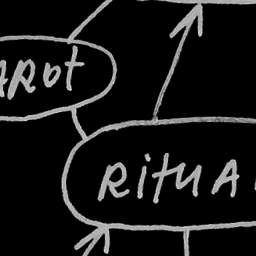 ARot
RituA